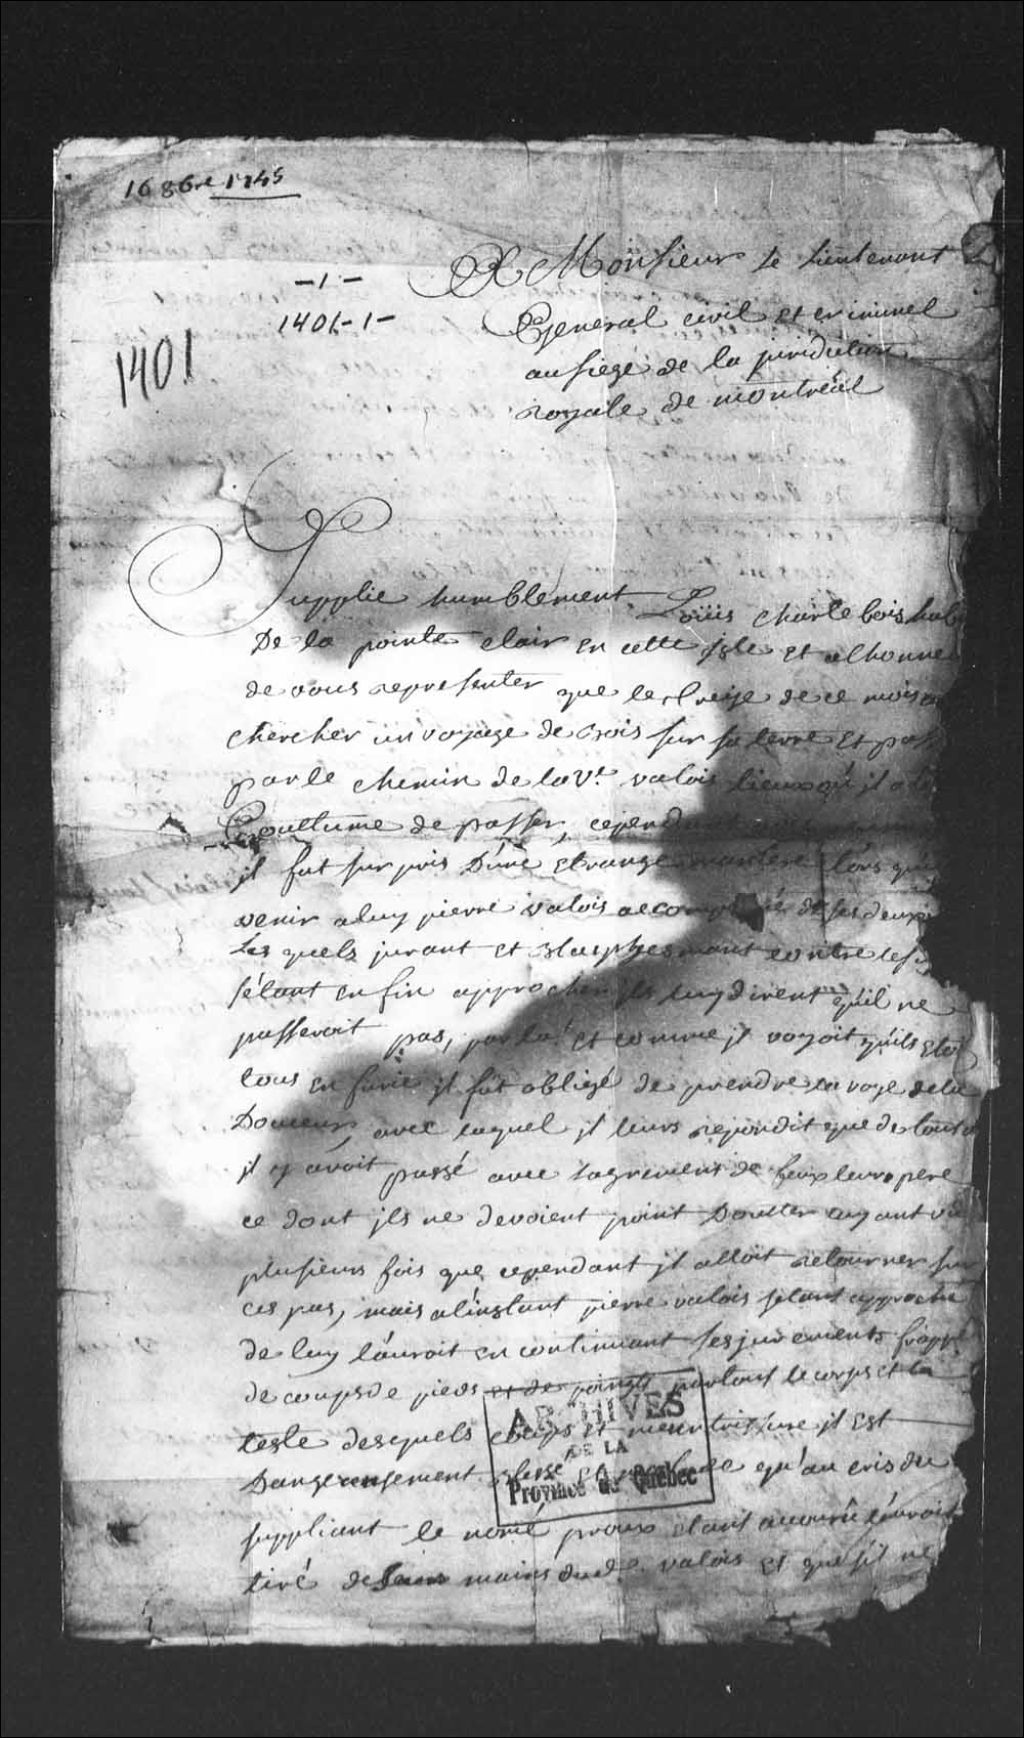 16 8bre 1745
A Monsieur le lieutenant
-1-
1401-1-
1401
General civil et criminel
au siege de la juridiction
royale de montréal
Supplie humblement Loüis charlebois hab
De la pointe clair en cette jsle et a lhonne
de vous representer que le treize de ce mois
chercher un voyage de bois sur sa terre et pas
par le chemin de la Ve. valois lieux où il a
Couttume de passer, cependant
il fut surpris D'une etrange maniere lors qu
venir a luy pierre valois accompagné de ses deux
Les quels jurant et blasphemant contre le s
s'étant enfin approcher ils luy dirent qu'il ne
passeroit pas, par la et comme jl voyoit qu'ils etoi
tous en furie jl fut obligé de prendre la voye de la
Douceur avec laquel jl leurs repondit que de tout
jl y avoit passé avec lagrement de feux leur pere
ce dont jls ne devoient point Doutter ayant vu
plusieurs fois que cependant jl alloit retourner sur
ces pas, mais a l'instant pierre valois setant approché
de luy l'auroit en continuant ses jurements frappé
de coups de pieds et de poings partout le corps et la
teste desquels coups et meurtrissure jl est
Dangereusement blessé qu'au cris du
suppliant le nomé proux etant accouru l'auroit
tiré des mains dud. valois et que s'il ne
ARCHIVES
DE LA
Province de Québec